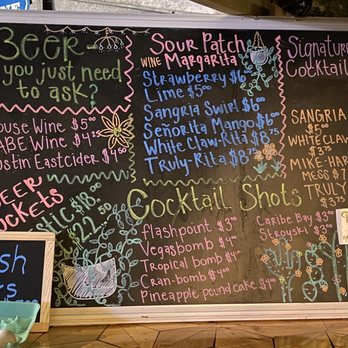 Beer-
you just need
to ask?
ouse Wine $5.00
ABE Wine $4.25
ustin Eastcider $4.50
Beer
uckets
estic $18.00
$22.50
sh
rs
Sour Patch
Wine Margarita
Strawberry $6
Lime $5.00
Sangria Swirl $6
Señorita Mango $6
White Claw-Rita $8.75
Truly-Rita $8.75
Signature
Cocktail
Sangria
$5.00
Whiteclaw
$3
Mike-Har
Mess $7
Truly
$3
Cocktail Shots
Flashpoint $3.00
Vegasbomb $4.00
Tropical bomb $4.00
Cran-bomb $4
Pineapple poundcake $4.00
Caribe Bay $3.00
Stroyski $3.00